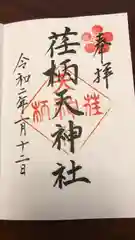 奉拝
荏柄天神社
令和二年月十二日